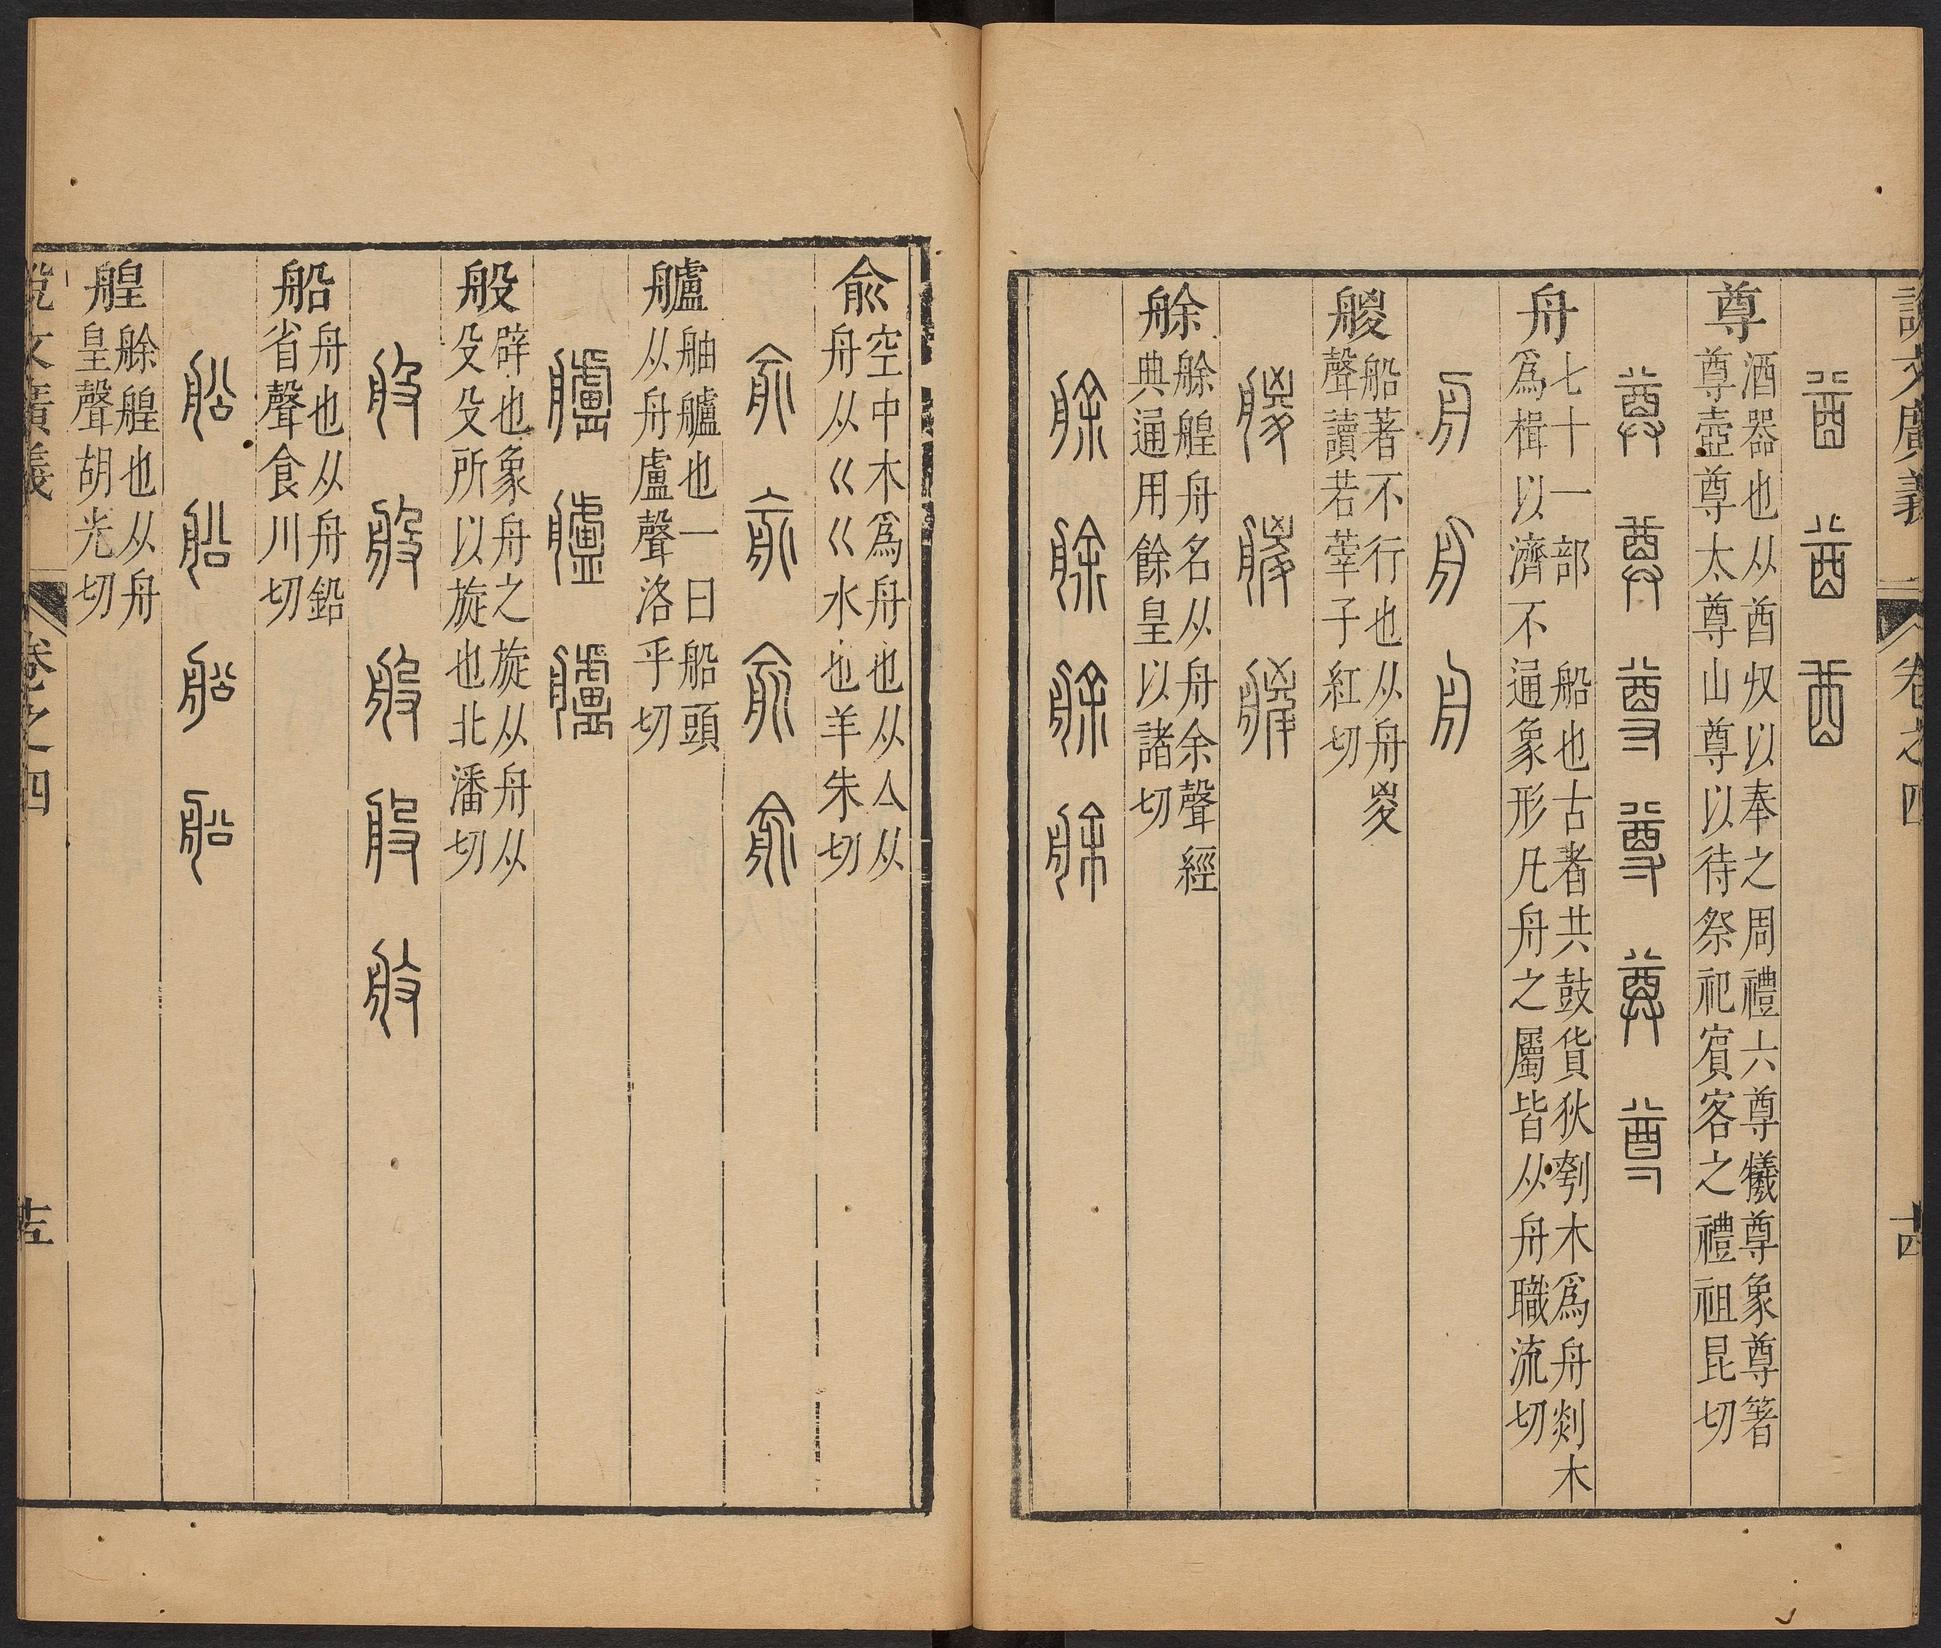 說文廣義
卷之四
十四
尊
酒器也从酋収以奉之周禮六尊犧尊象尊箸
尊壺尊太尊山尊以待祭祀賓客之禮祖昆切
舟
七十一部 船也古者共鼓貨狄刳木爲舟剡木
爲楫以濟不通象形凡舟之屬皆从舟職流切
艐
船著不行也从舟㚇
聲讀若䔖子紅切
艅
艅艎舟名从舟余聲經
典通用餘皇以諸切
兪
空中木爲舟也从亼从
舟从巜巜水也羊朱切
艫
舳艫也一曰船頭
从舟盧聲洛乎切
般
辟也象舟之旋从舟从
殳殳所以旋也北潘切
船
舟也从舟鉛
省聲食川切
艎
艅艎也从舟
皇聲胡光切
說文廣義
卷之四